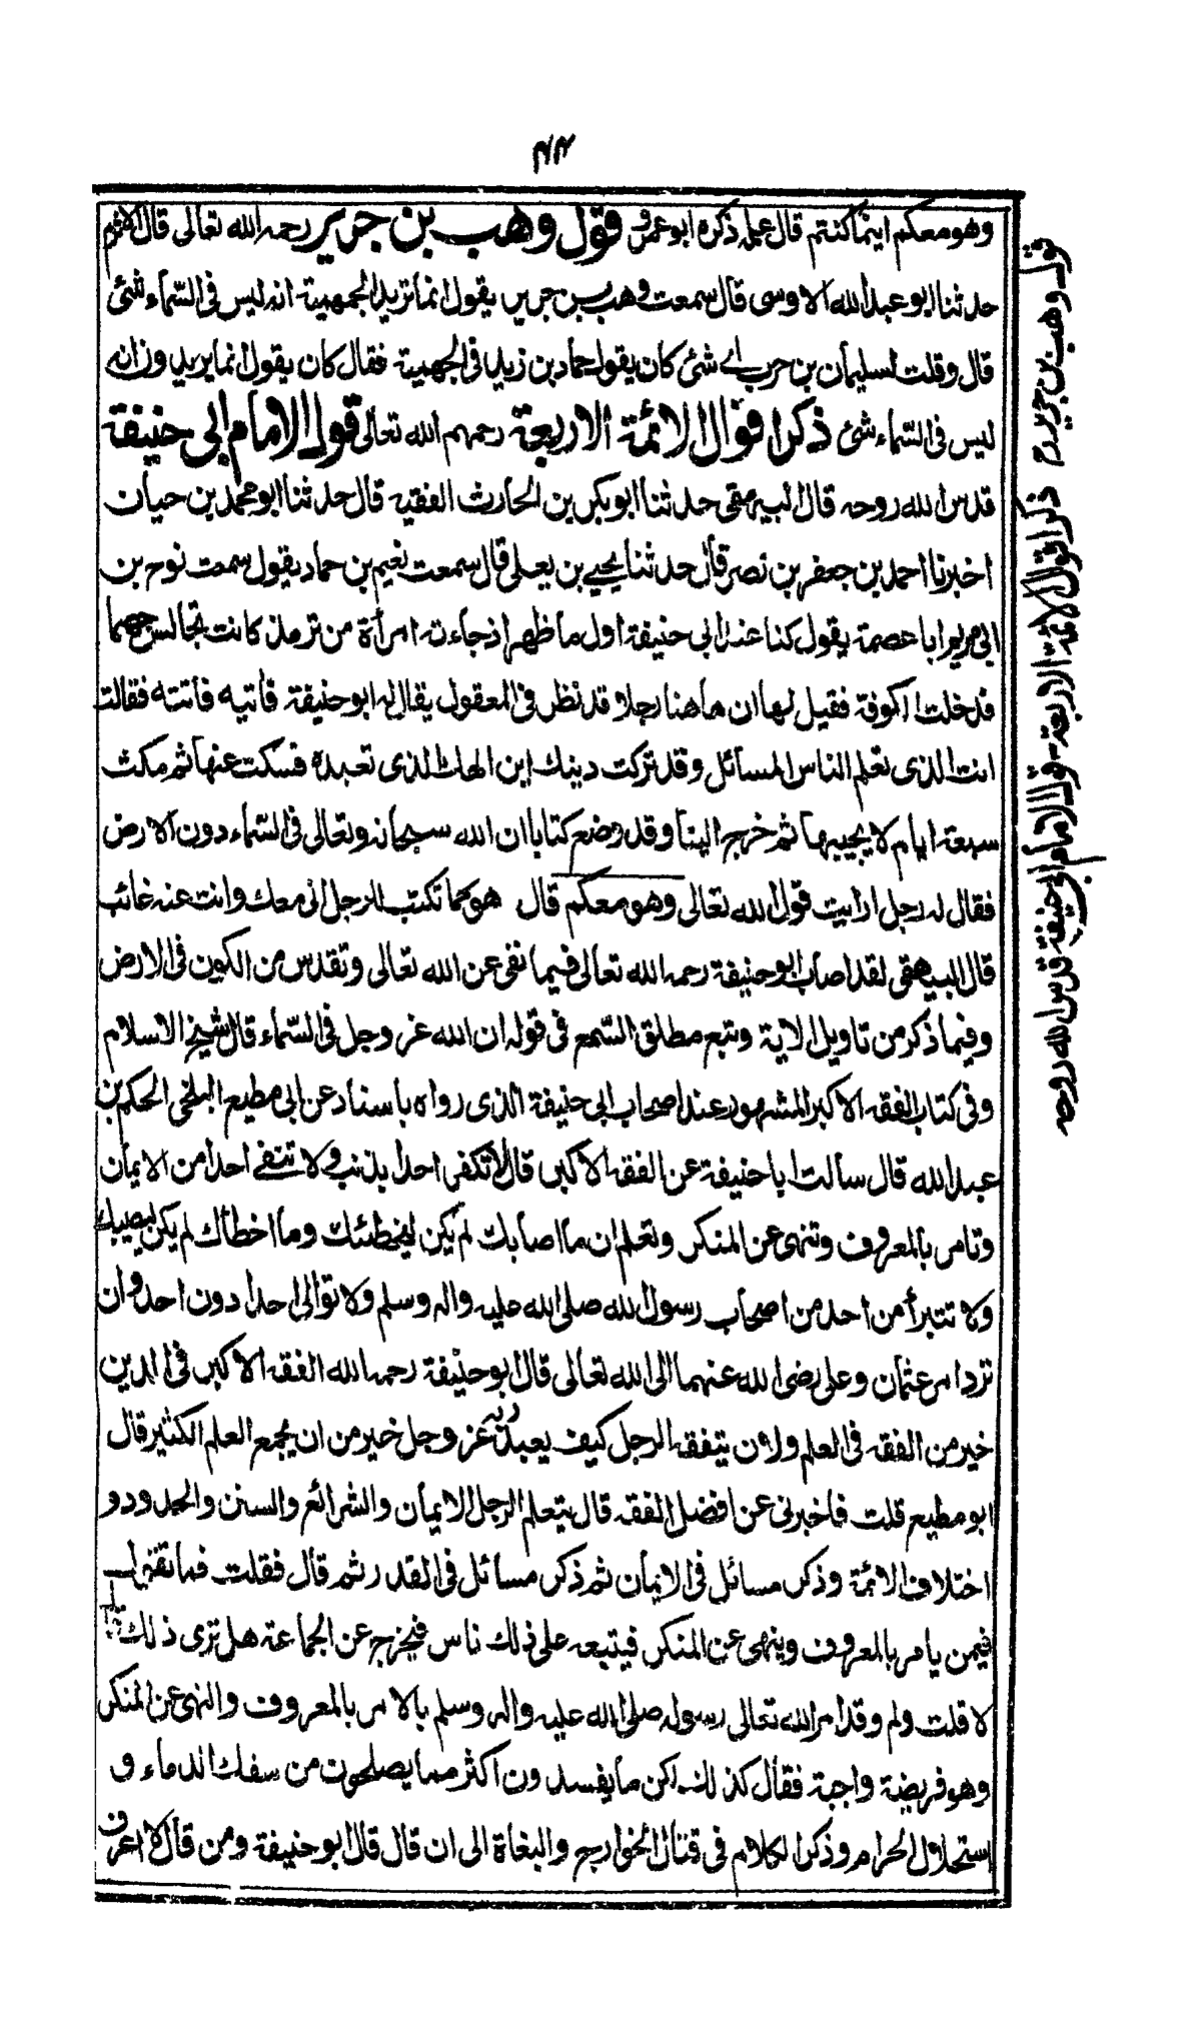 ٤٤
وهو معكم اينما كنتم قال علمه ذكره ابوعمرو قول وهب بن جرير رحمه الله تعالى قال الاثرم
حدثنا ابو عبد الله الاوسى قال سمعت وهب بن جرير يقول انما تريد الجهمية انه ليس فى السماء شئ
قال وقلت لسليمان بن حرب اے شئ كان يقول حماد بن زيد فى الجهمية فقال كان يقول انما يريدون انه
ليس فى السماء شئ ذكر اقوال الائمة الاربعة رحمهم الله تعالى قول الامام ابى حنيفة
قدس الله روحه قال البيهقى حدثنا ابو بكر بن الحارث الفقيه قال حدثنا ابو محمد بن حيان
اخبرنا احمد بن جعفر بن نصر قال حدثنا يحيے بن يعلى قال سمعت نعيم بن حماد يقول سمعت نوح بن
ابى مريم ابا عصمة يقول كنا عند ابى حنيفة اول ما ظهر اذ جاءته امرأة من ترمذ كانت تجالس جهما
فدخلت الكوفة فقيل لها ان هاهنا رجلا قد نظر فى المعقول يقال له ابو حنيفة فأتيه فأتته فقالت
انت الذى تعلم الناس المسائل وقد تركت دينك اين الهك الذى تعبده فسكت عنها ثم مكث
سبعة ايام لا يجيبها ثم خرج الينا وقد وضع كتابا ان الله سبحانه وتعالى فى السماء دون الارض
فقال له رجل ارأيت قول الله تعالى وهو معكم قال هو كما تكتب للرجل انى معك وانت عنه غائب
قال البيهقى لقد اصاب ابو حنيفة رحمه الله تعالى فيما نفى عن الله تعالى وتقدس من الكون فى الارض
وفيما ذكر من تاويل الاية وتبع مطلق السمع فى قوله ان الله عز وجل فى السماء قال شيخ الاسلام
وفى كتاب الفقه الاكبر المشهور عند اصحاب ابى حنيفة الذى رواه باسناد عن ابى مطيع البلخى الحكم بن
عبد الله قال سألت ابا حنيفة عن الفقه الاكبر قال لا تكفر احدا بذنب ولا تنفے احدا من الايمان
وتامر بالمعروف وتنهى عن المنكر وتعلم ان ما اصابك لم يكن ليخطئك وما اخطأك لم يكن ليصيبك
ولا تتبرأ من احد من اصحاب رسول الله صلى الله عليه واله وسلم ولا توالى احدا دون احد وان
ترد امر عثمان وعلى رضى الله عنهما الى الله تعالى قال ابو حنيفة رحمه الله الفقه الاكبر فى الدين
خير من الفقه فى العلم ولان يتفقه الرجل كيف يعبد ربه عز وجل خير من ان يجمع العلم الكثير قال
ابو مطيع قلت فاخبرنى عن افضل الفقه قال يتعلم الرجل الايمان والشرائع والسنن والحدود و
اختلاف الائمة وذكر مسائل فى الايمان ثم ذكر مسائل فى القدر ثم قال فقلت فما تقول
فيمن يامر بالمعروف وينهى عن المنكر فيتبعه على ذلك ناس فيخرج عن الجماعة هل ترى ذلك قال
لا قلت ولم وقد امر الله تعالى رسوله صلى الله عليه واله وسلم بالامر بالمعروف والنهى عن المنكر
وهو فريضة واجبة فقال كذلك لكن ما يفسدون اكثر مما يصلحون من سفك الدماء و
استحلال الحرام وذكر الكلام فى قتال الخوارج والبغاة الى ان قال قال ابو حنيفة ومن قال لا اعرف
قول وهب بن جرير رح ذكر اقوال الائمة الاربعة - قول الامام ابى حنيفة قدس الله روحه